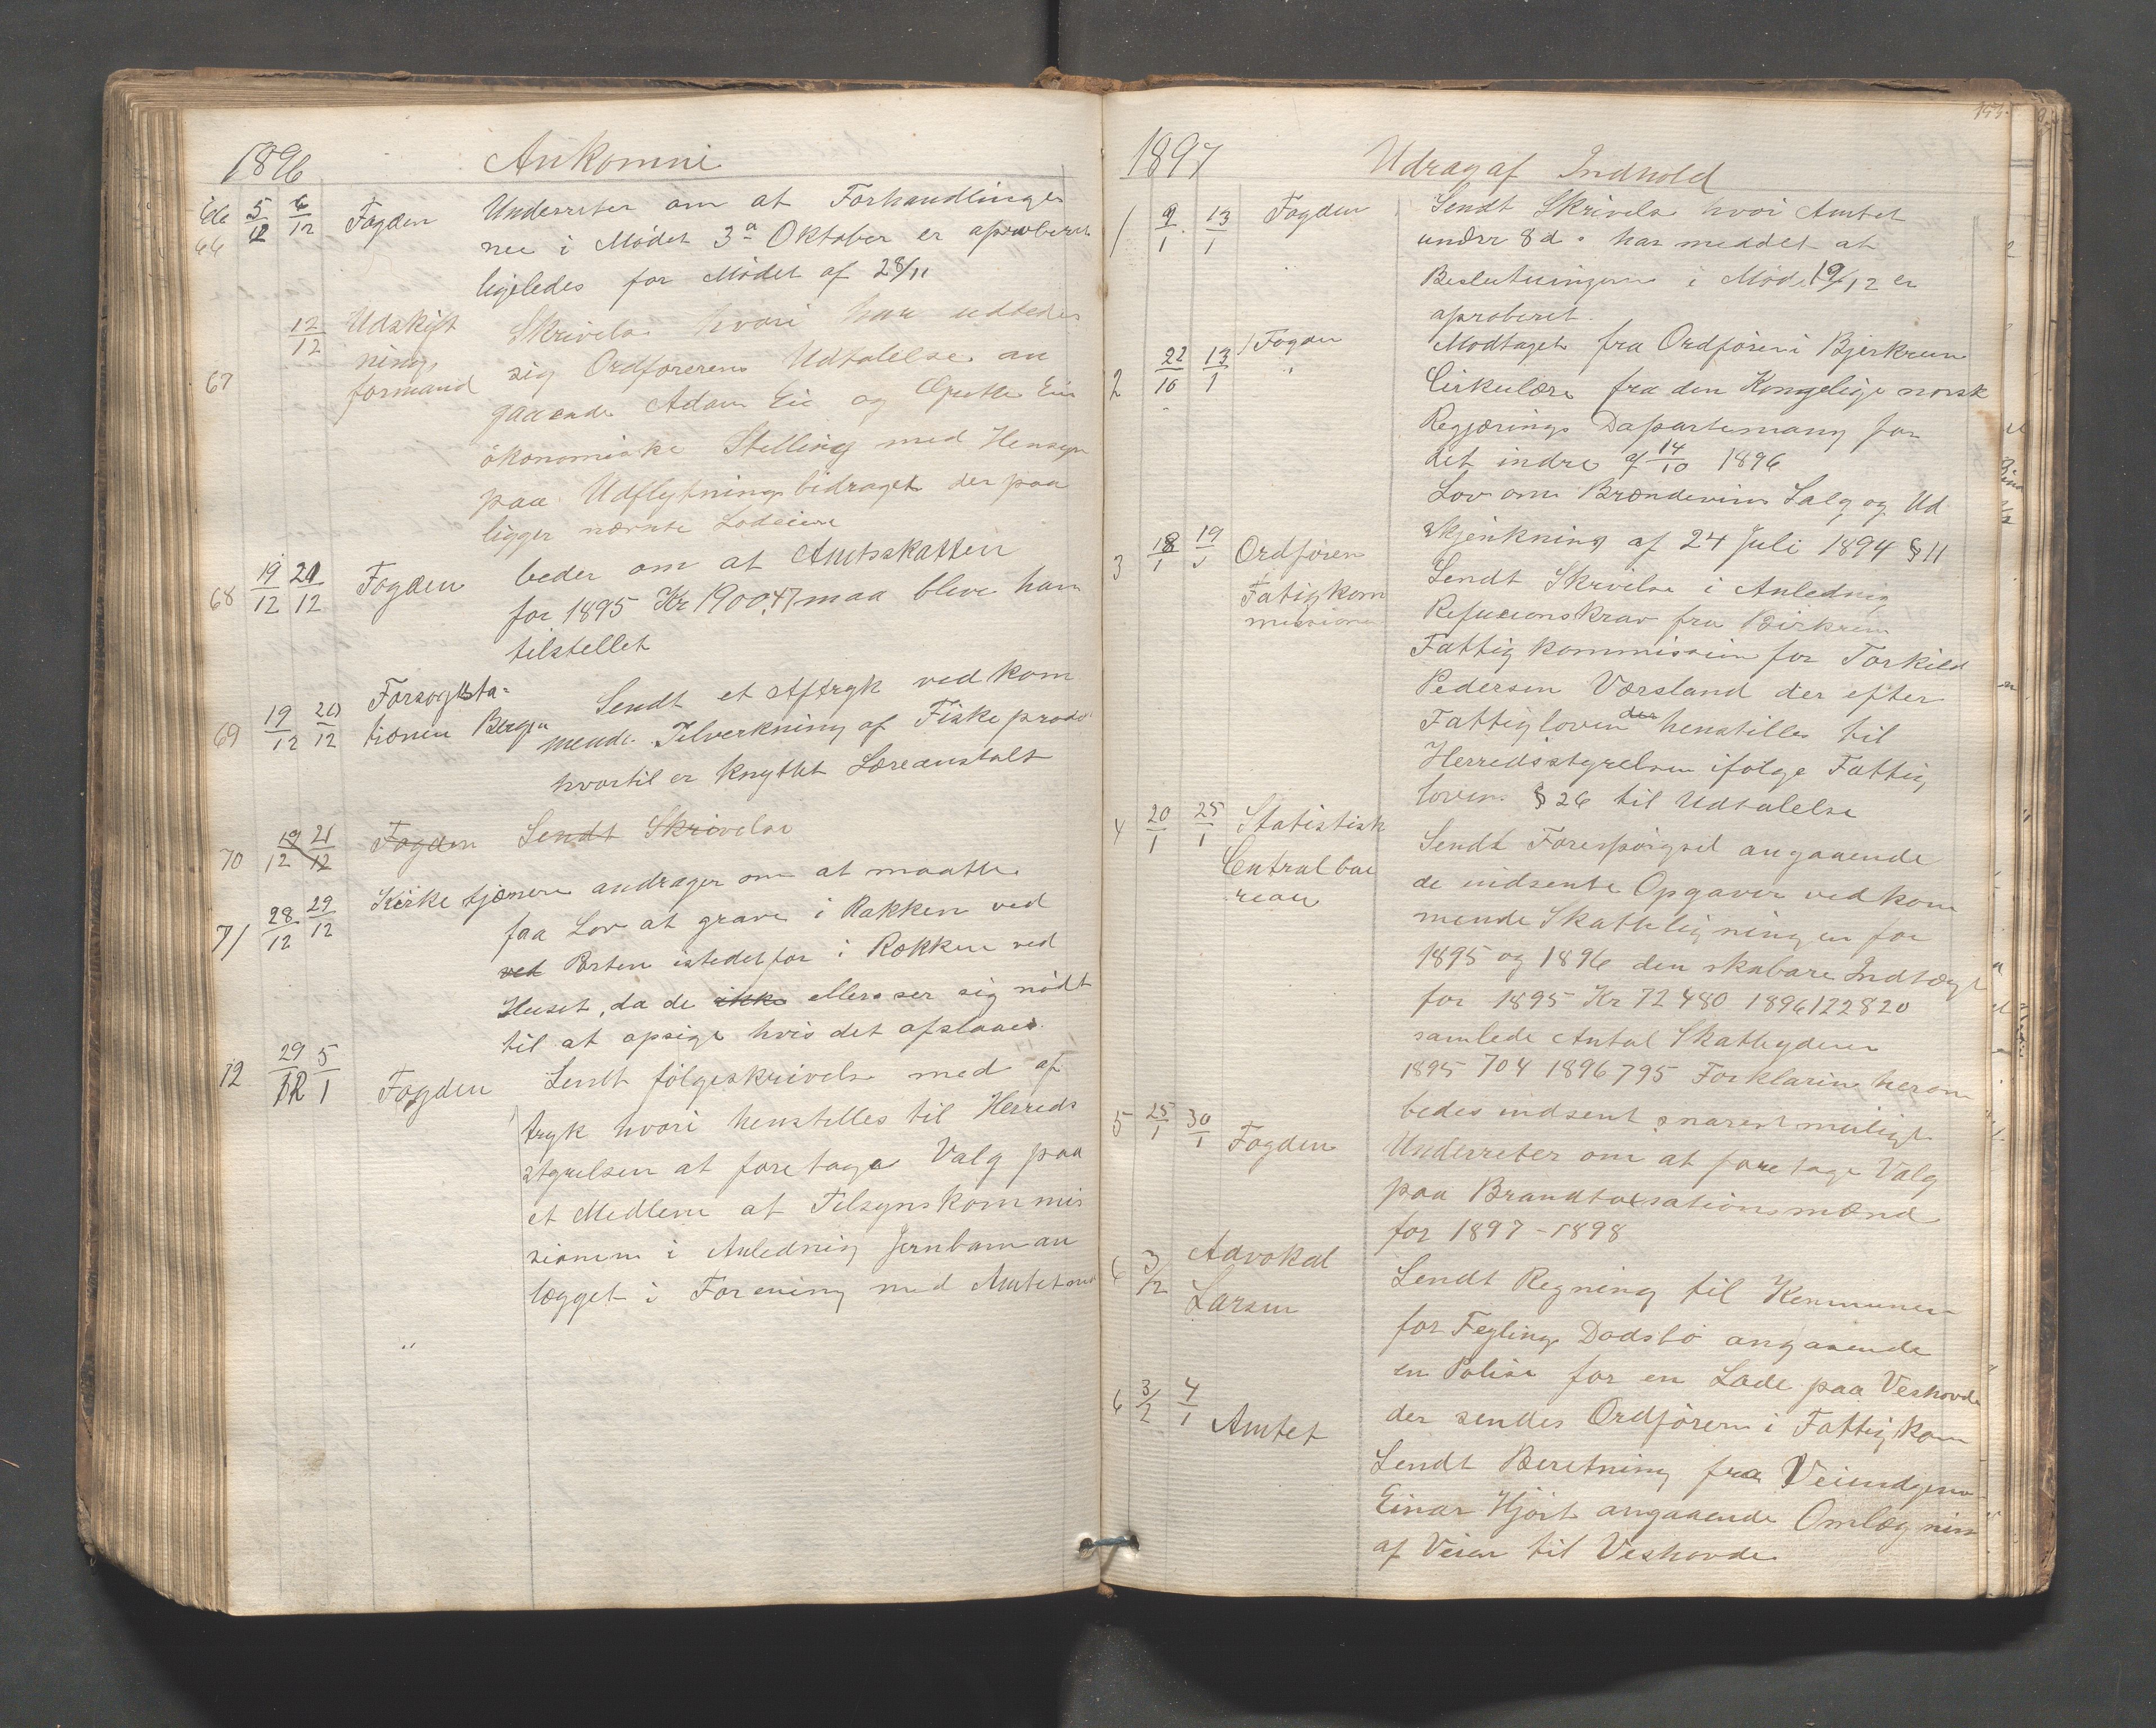 1896 Ankomne
66 5/12 6/12 Fogden Underreter om at Forhandlinger
nee i Mødet 3a Oktober er aproberet
ligeledes for Mødet af 28/11
67 12/12 Udskift
ning,
formand
Skrivelse hvori han udbeder
sig Ordførerens Udtalelse an
gaaende Adam Eie og Eie
økonomiske Stelling med Hensyn
paa Udflytningsbidraget der paa
ligger nævnte Lodeiere
68 19/12 21/12 Fogden beder om at Amtsskatten
for 1895 Kr 1900,47 maa bleve ham
tilstellet
69 19/12 20/12 Forsøgssta-
tionen Bergen Sendt et Aftryk vedkom
mende Tilverkning af Fiskeprodu
hvortil er knyttet Læreanstalt
70 19/12 21/12 Fogden Sendt Skrivelse
71 28/12 29/12 Kirketjænere andrager om at maatte
faa Lov at grave i Rækken ved
ved Porten istedetfor i Rækken ved
Huset, da de ikke ellers ser sig nødt
til at opsige hvis det afslaaes.
72 29/12 5/1 Fogden Sendt følgeskrivelse med af
tryk hvori henstilles til Herreds
styrelsen at foretage Valg paa
et Medlem at Tilsynskommis
sionen i Anledning Jernbanean
lægget i Forening med Amtet med
1897 Udrag af Indhold
1 9/1 13/1 Fogden Sendt Skrivelse hvori Amtet
under 8 d. har meddet at
Beslutningerne i Møde 19/12 er
aproberet.
2 22/10 13/1 Fogden Modtaget fra Ordføreri Bjerkrem
Cirkulære fra den Kongelige norsk
Regjærings Dapartemang for
det indre af 14/10 1896
Lov om Brændevins Salg og Ud
skjenkning af 24 Juli 1894 § 11
3 18/1 19/1 Ordføren
Fatigkom
missionen
Sendt Skrivelse i Anledning
Refusionskrav fra Birkrem
Fattigkommission for Torkild
Pedersen Vørsland der efter
Fattigloven der henstilles til
Herredsstyrelsen ifølge Fattig
loven § 26 til Udtalelse
4 20/1 25/1 Statistisk
Centralbue
reau
Sendt Forespørgsel angaaende
de indsente Opgaver vedkom
mende Skatteligningen for
1895 og 1896 den skabare Indtægt
for 1895 Kr 72480 1896 122820
samlede Antal Skattydere
1895 704 1896 795 Forklaring herom
bedes indsent snarest muligt
5 25/1 30/1 Fogden Underreter om at foretage Valg
paa Brandtaxsationsmænd
for 1897-1898
6 3/2 Advokat
Larsen
Sendt Regning til Kommunen
for Feylings Dødsbo angaaende
en Polise for en Lade paa Veshovde
der sendes Ordføreren i Fattigkom
6 3/2 4/1 Amtet Sendt Beretning fra Veiindgeniø
Einar Hjort angaaende Omlægning
af Veien til Veshovde